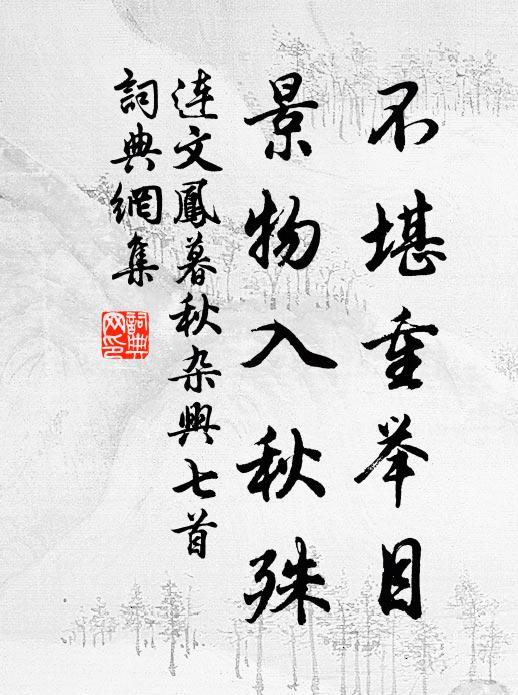 不堪重举目
景物入秋殊
连文鳳暮秋杂興七首
詞典網集
詞典网印